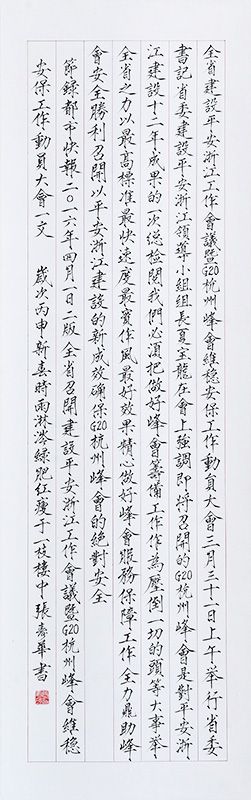 全省建設平安浙江工作會議暨G20杭州峰會維穩安保工作動員大會三月三十一日上午舉行省委
書記省委建設平安浙江領導小組組長夏寶龍在會上強調即將召開的G20杭州峰會是對平安浙
江建設十二年成果的一次總檢閱我們必須把做好峰會籌備工作作為壓倒一切的頭等大事舉
全省之力以最高標準最快速度最實作風最好效果精心做好峰會服務保障工作全力助峰
會安全勝利召開以平安浙江建設的新成效確保G20杭州峰會的絕對安全
節錄都市快報二〇一六年四月一日二版全省召開建設平安浙江工作會議暨G20杭州峰會維穩
安保工作動員大會一文 歲次丙申新春時雨淋涔綠肥紅瘦于一枝樓中張秀華書